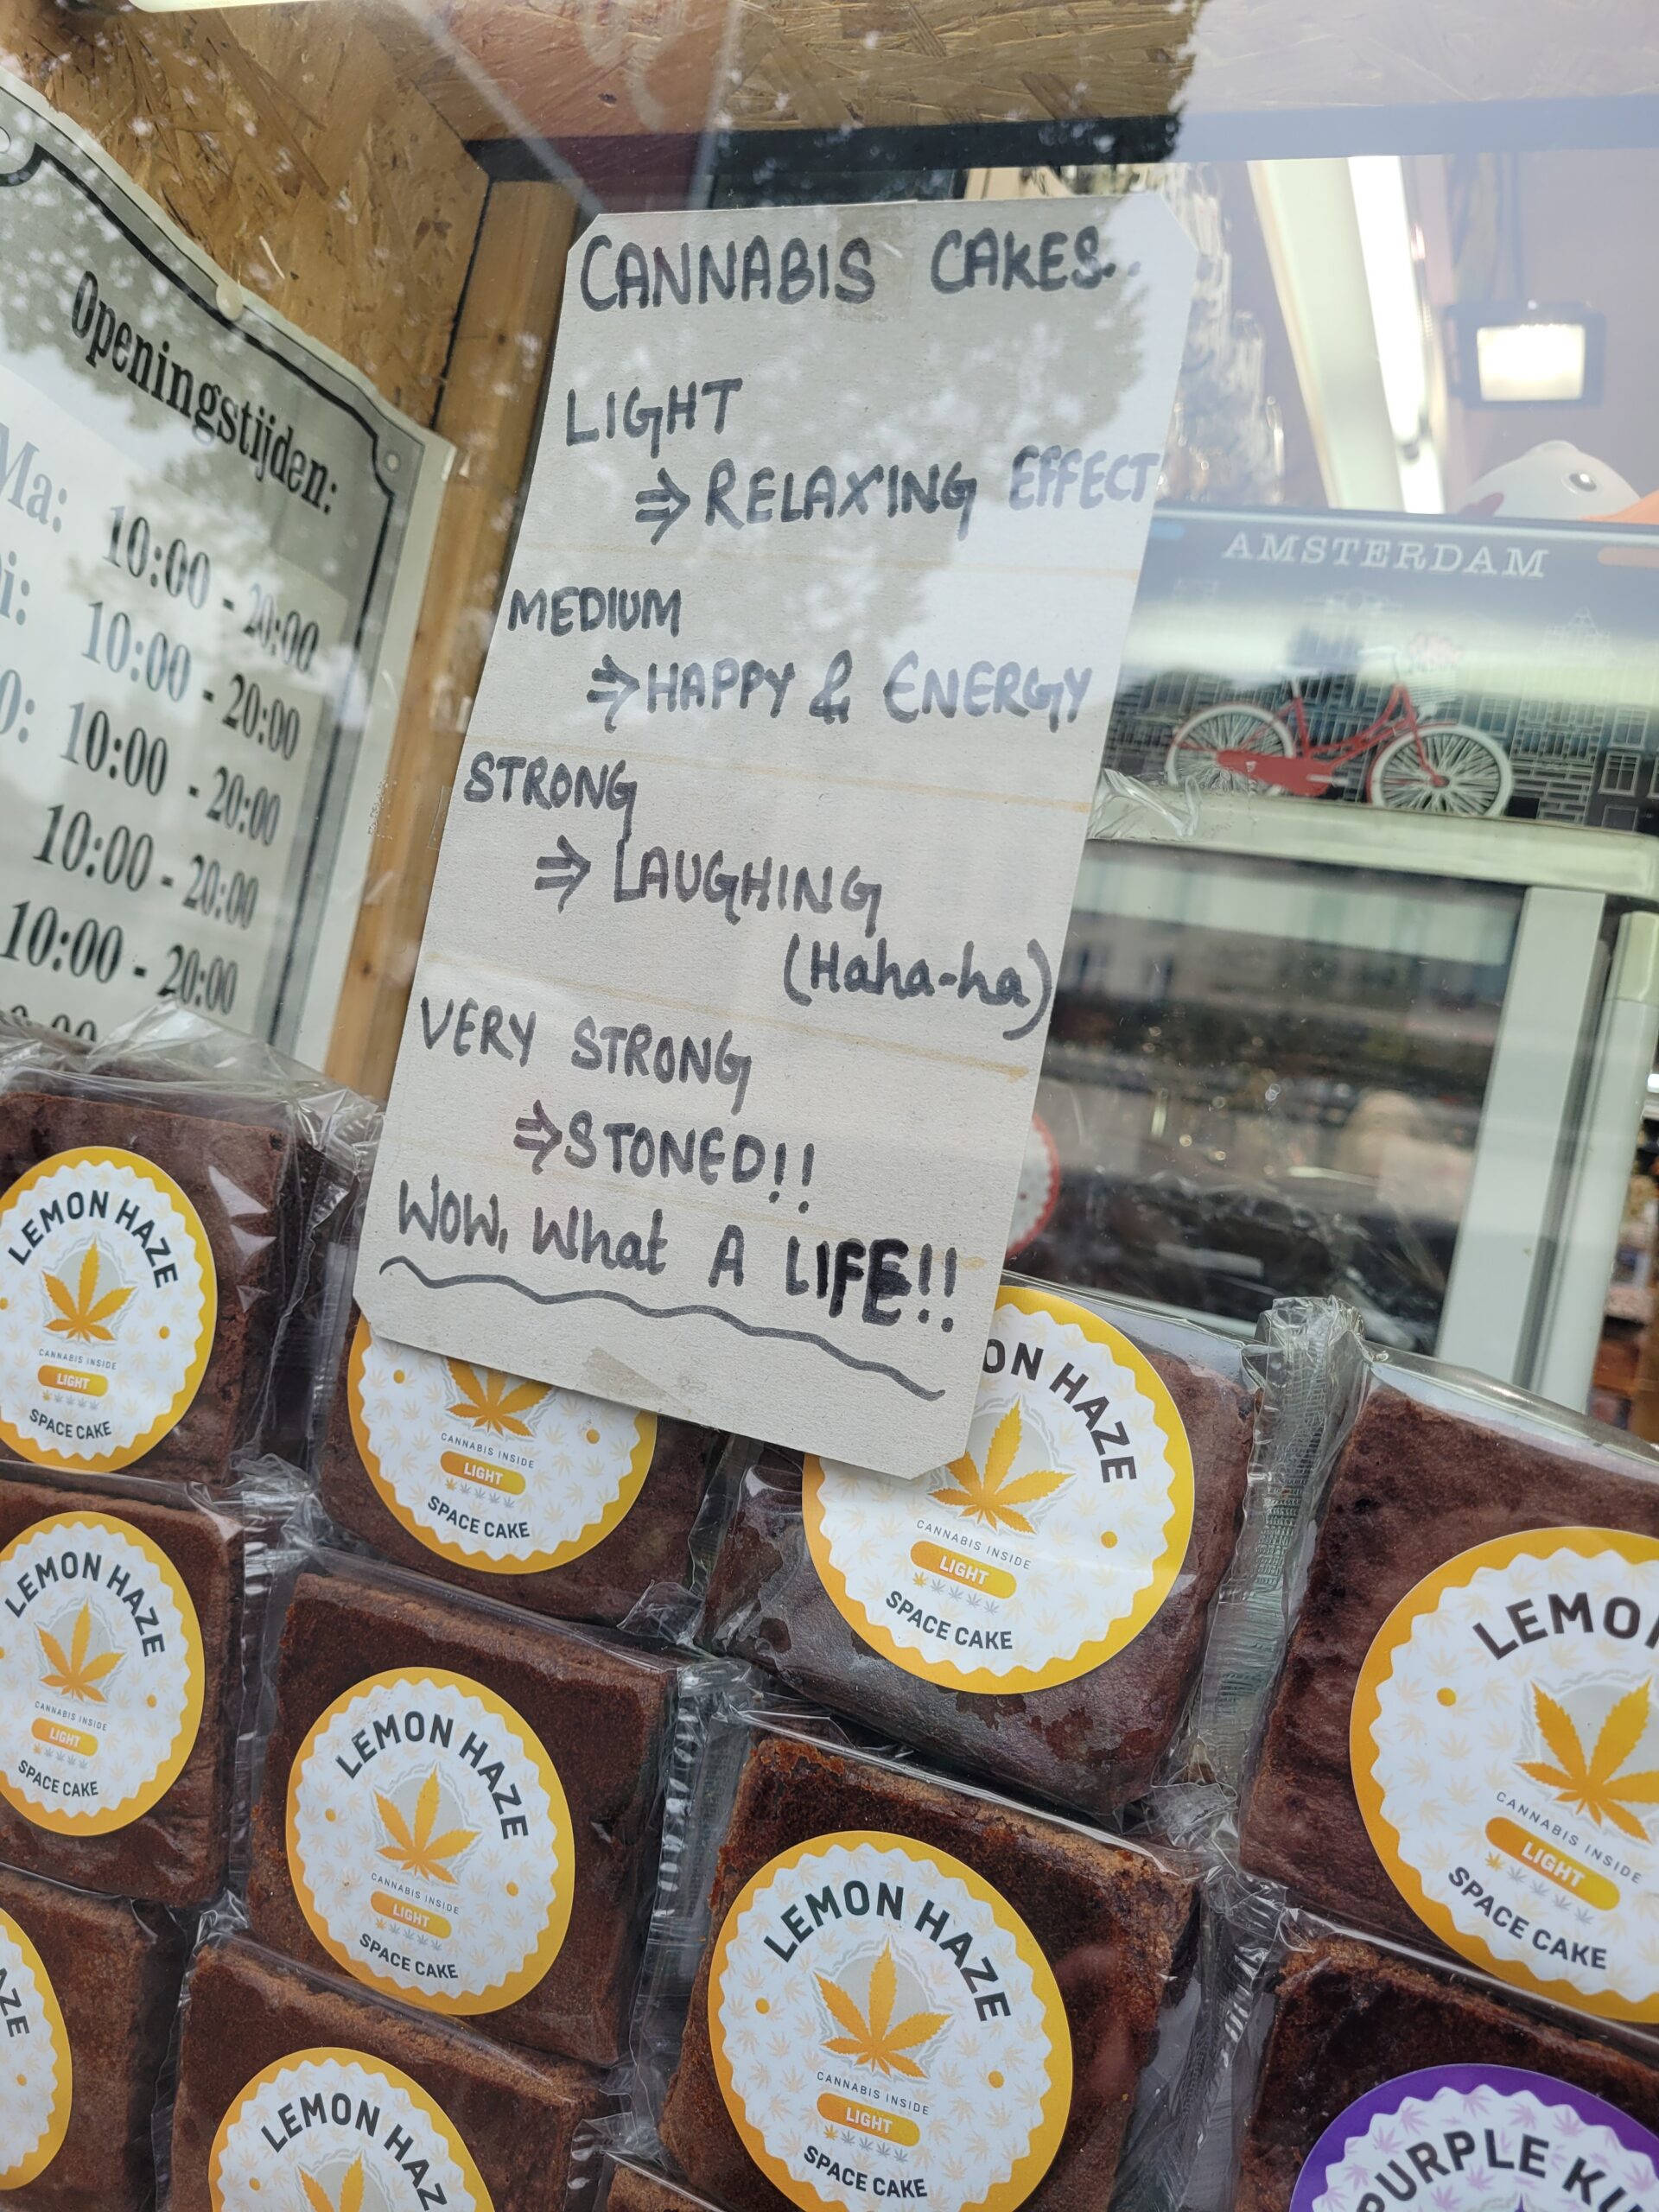 Openingstijden:
Ma: 10:00 - 20:00
10:00 - 20:00
10:00 - 20:00
10:00 - 20:00
10:00 - 20:00
CANNABIS CAKES
LIGHT
⇒ RELAXING EFFECT
MEDIUM
⇒ HAPPY & ENERGY
STRONG
⇒ LAUGHING
(Haha-ha)
VERY STRONG
⇒ STONED!!
WOW, What A LIFE!!
AMSTERDAM
LEMON HAZE
CANNABIS INSIDE
LIGHT
SPACE CAKE
CANNABIS INSIDE
LIGHT
SPACE CAKE
HAZE
CANNABIS INSIDE
LIGHT
SPACE CAKE
CANNABIS INSIDE
LIGHT
SPACE CAKE
LEMON HAZE
CANNABIS INSIDE
LIGHT
SPACE CAKE
LEMON HAZE
CANNABIS INSIDE
LIGHT
SPACE CAKE
LEMON HAZE
CANNABIS INSIDE
LIGHT
SPACE CAKE
LEMON
PURPLE